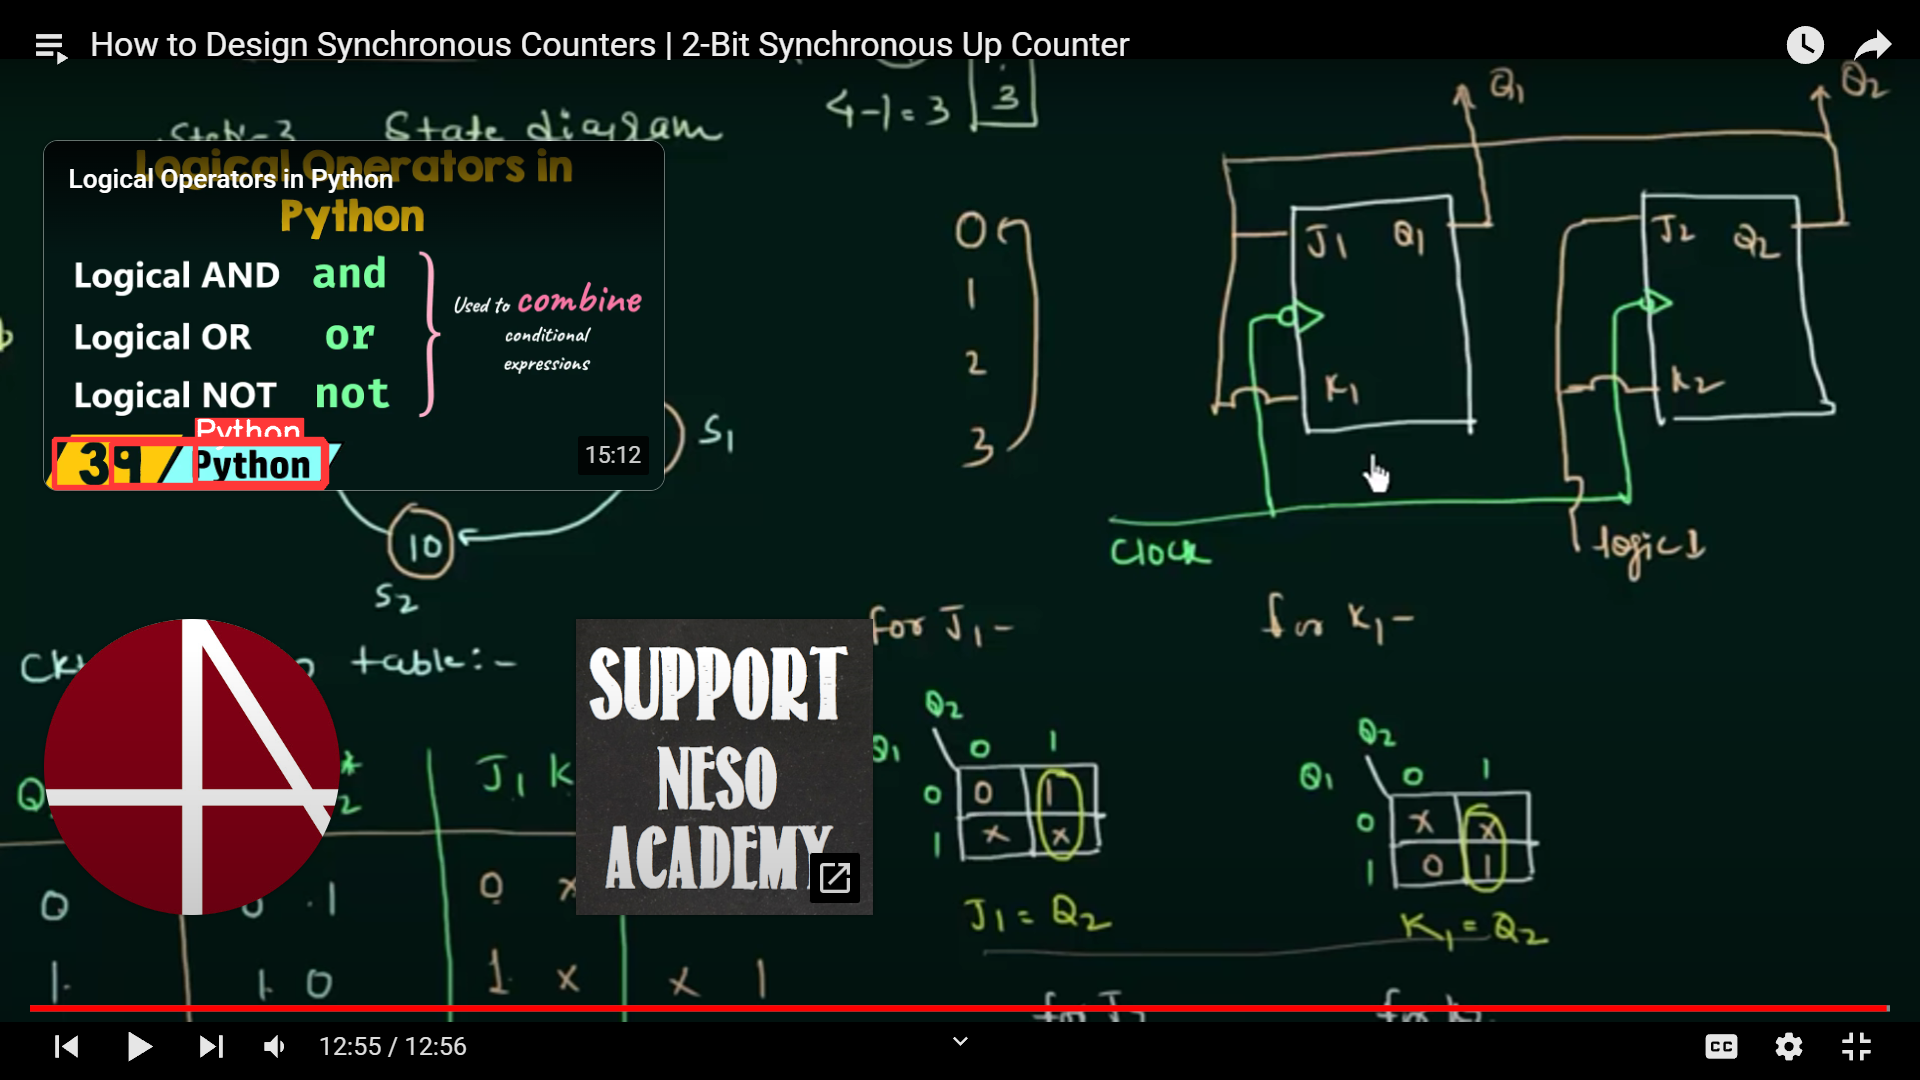 How to Design Synchronous Counters | 2-Bit Synchronous Up Counter
4-1=3 3
State diagram
Logical Operators in
Python
Logical Operators in Python
Logical AND and
Logical OR or
Logical NOT not
Used to combine
conditional
expressions
Python
39 Python
15:12
S1
10
S2
0
1
2
3
Q1
Q2
J1 Q1
K1
J2 Q2
K2
Clock
logic 1
table:-
J1 K
0 1 0 x
1 1 0 1 x x 1
SUPPORT
NESO
ACADEMY
for J1-
Q2
Q1 0 1
0 0 1
1 x x
J1 = Q2
for K1-
Q2
Q1 0 1
0 x x
1 0 1
K1 = Q2
12:55 / 12:56
CC